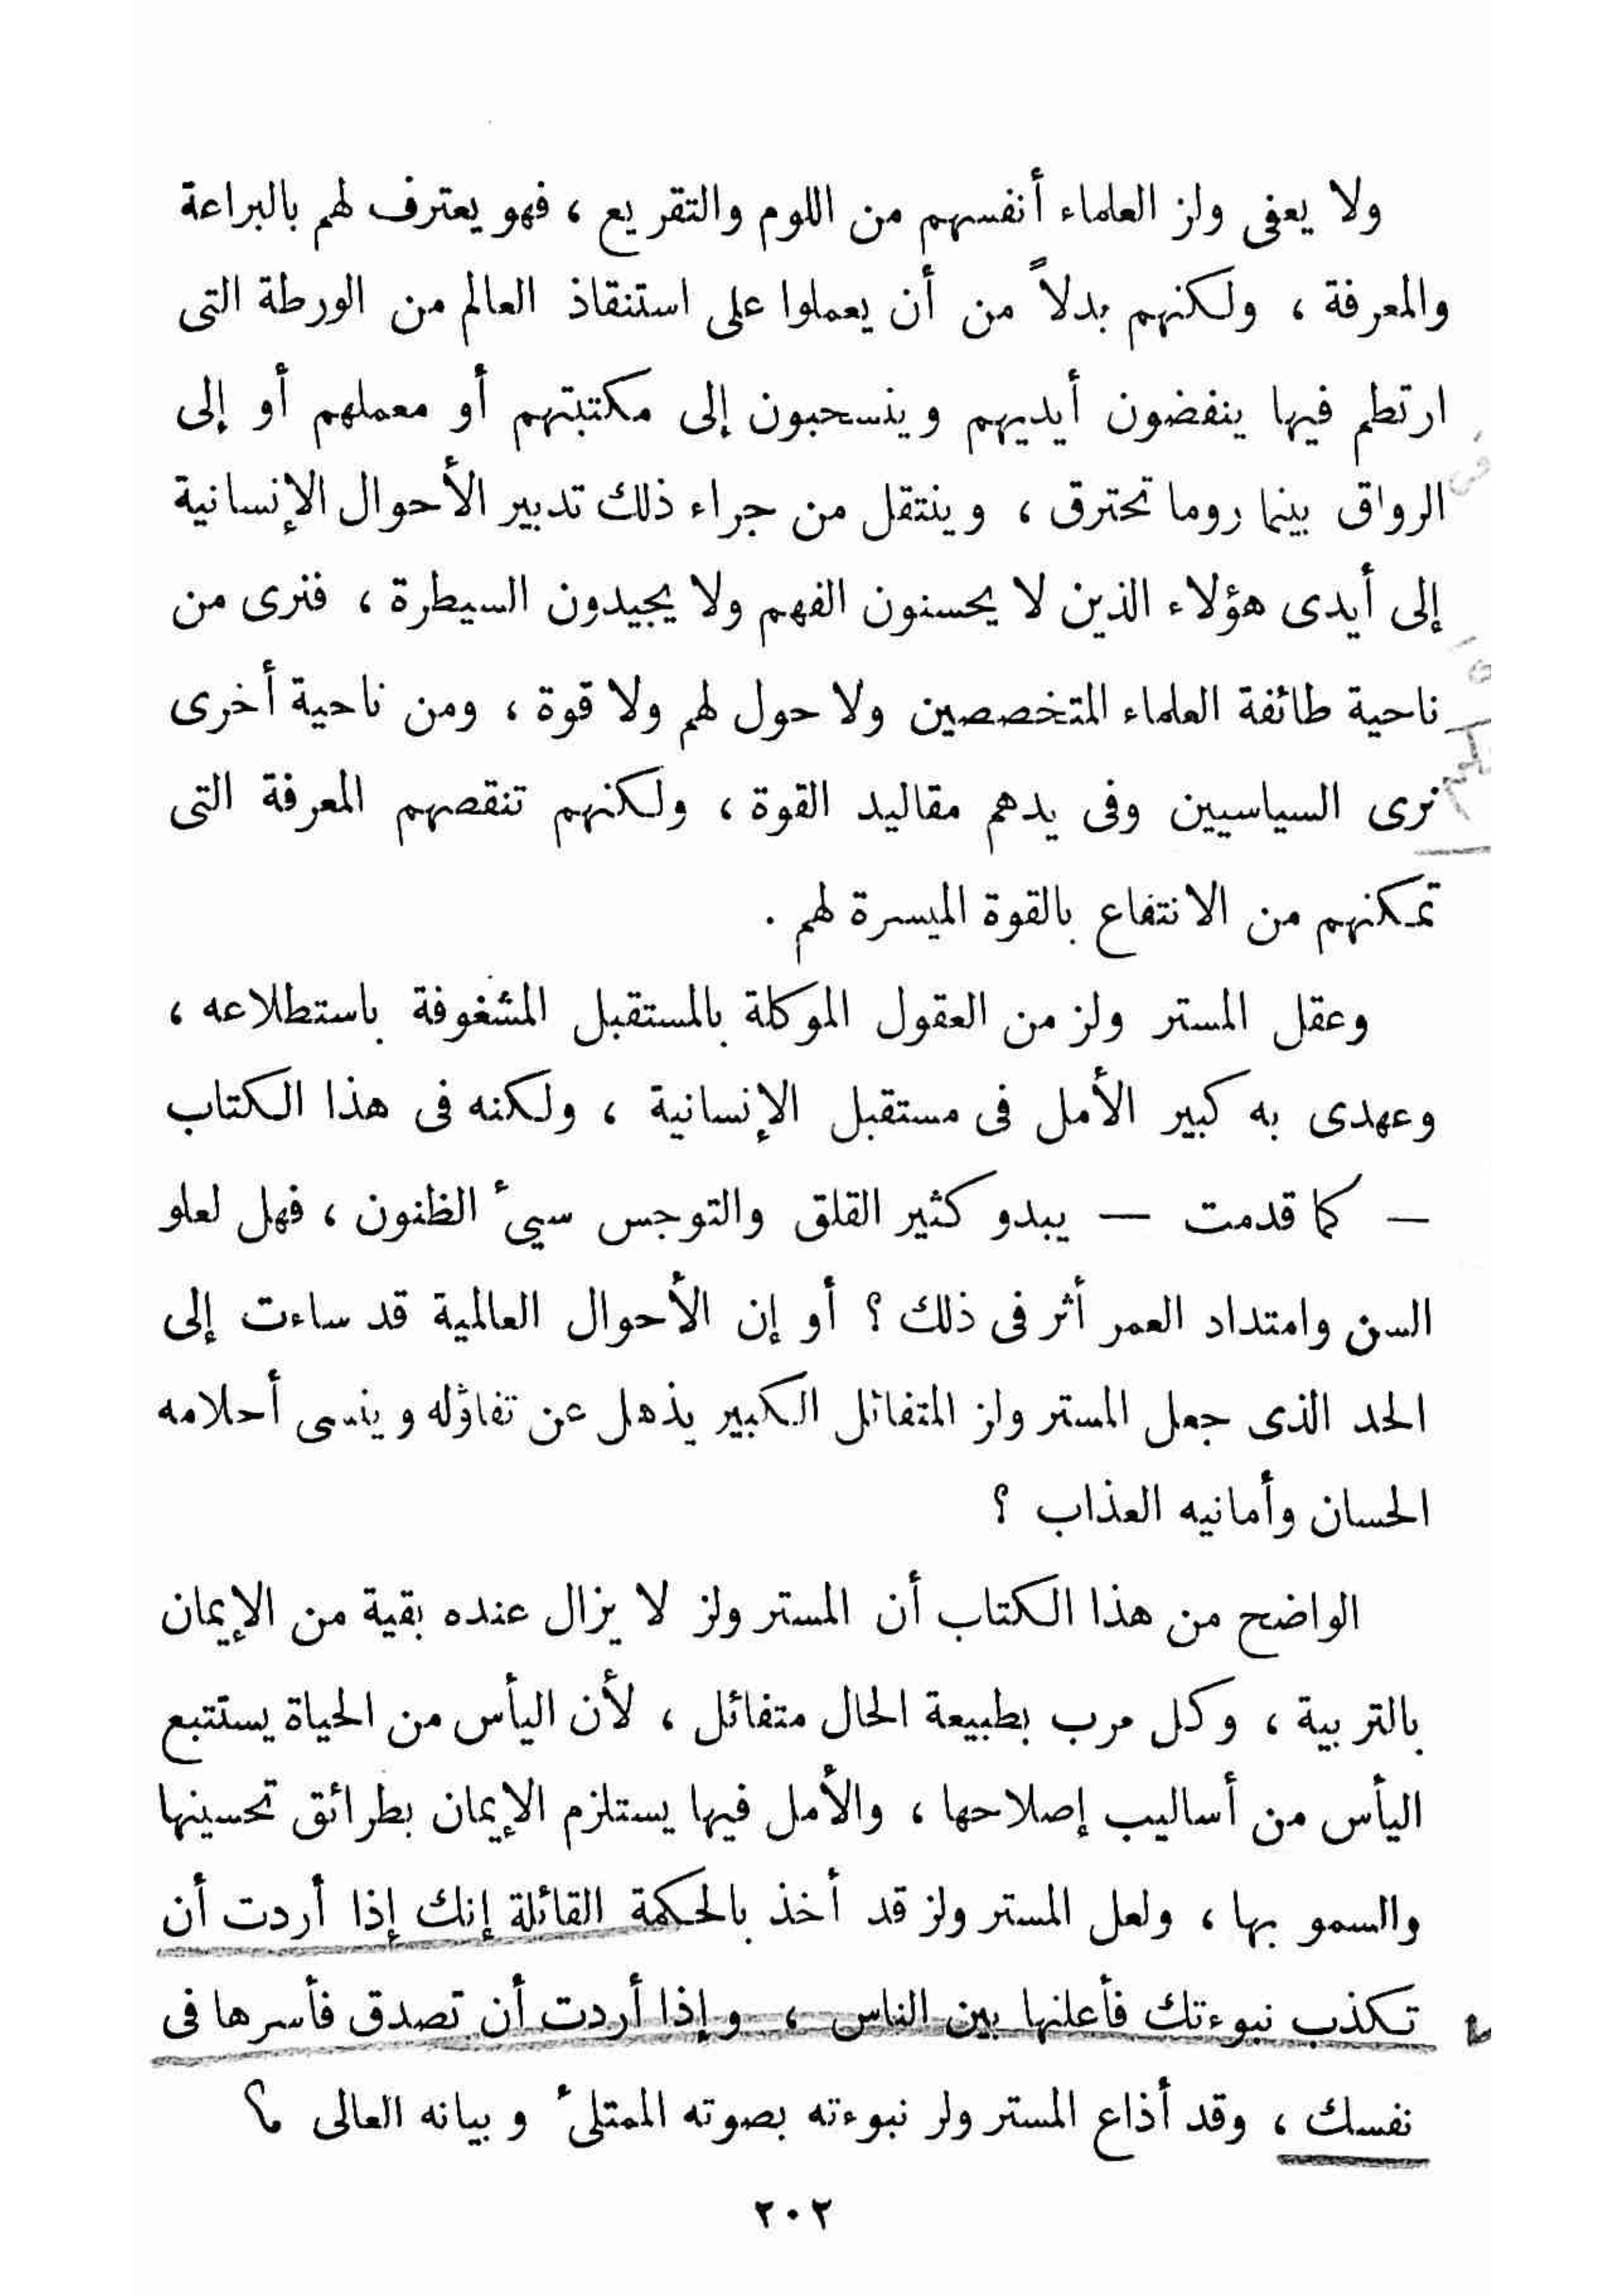 ولا يعفى ولز العلماء أنفسهم من اللوم والتقريع ، فهو يعترف لهم بالبراعة
والمعرفة ، ولكنهم بدلاً من أن يعملوا على استنقاذ العالم من الورطة التى
ارتطم فيها ينفضون أيديهم وينسحبون إلى مكتبتهم أو معملهم أو إلى
الرواق بينما روما تحترق ، وينتقل من جراء ذلك تدبير الأحوال الإنسانية
إلى أيدى هؤلاء الذين لا يحسنون الفهم ولا يجيدون السيطرة ، فنرى من
ناحية طائفة العلماء المتخصصين ولا حول لهم ولا قوة ، ومن ناحية أخرى
نرى السياسيين وفى يدهم مقاليد القوة ، ولكنهم تنقصهم المعرفة التى
تمكنهم من الانتفاع بالقوة الميسرة لهم .
وعقل المستر ولز من العقول الموكلة بالمستقبل المشغوفة باستطلاعه ،
وعهدى به كبير الأمل فى مستقبل الإنسانية ، ولكنه فى هذا الكتاب
— كما قدمت — يبدو كثير القلق والتوجس سيئ الظنون ، فهل لعلو
السن وامتداد العمر أثر فى ذلك ؟ أو إن الأحوال العالمية قد ساءت إلى
الحد الذى جعل المستر ولز المتفائل الكبير يذهل عن تفاؤله وينسى أحلامه
الحسان وأمانيه العذاب ؟
الواضح من هذا الكتاب أن المستر ولز لا يزال عنده بقية من الإيمان
بالتربية ، وكل مرب بطبيعة الحال متفائل ، لأن اليأس من الحياة يستتبع
اليأس من أساليب إصلاحها ، والأمل فيها يستلزم الإيمان بطرائق تحسينها
والسمو بها ، ولعل المستر ولز قد أخذ بالحكمة القائلة إنك إذا أردت أن
تكذب نبوءتك فأعلنها بين الناس ، وإذا أردت أن تصدق فأسرها فى
نفسك ، وقد أذاع المستر ولز نبوءته بصوته الممتلئ وبيانه العالى
٢٠٢